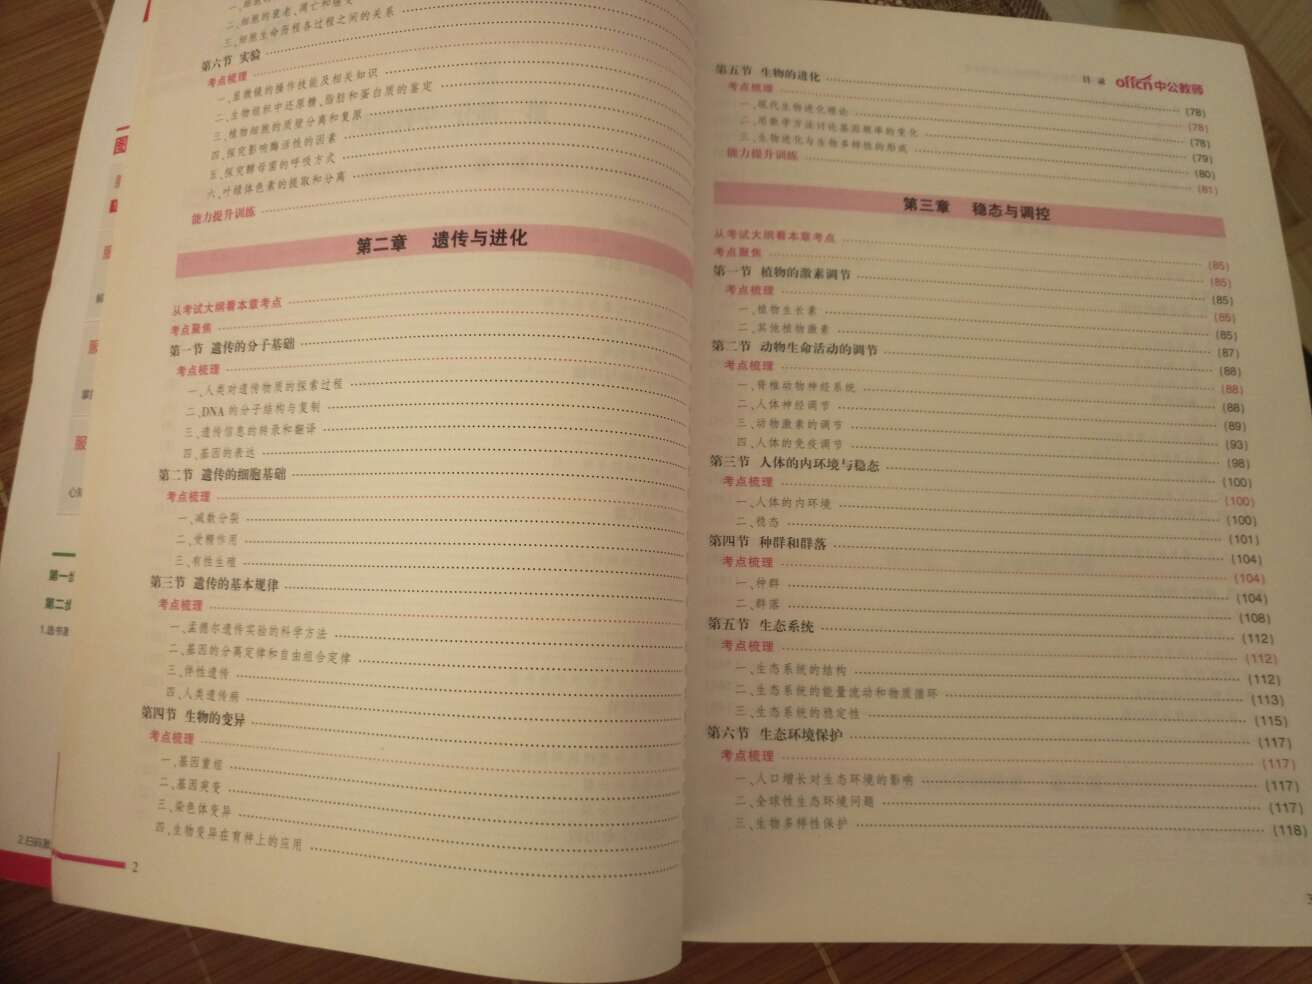 二、细胞的衰老、凋亡和癌变
三、细胞生命历程各过程之间的关系
第六节 实验
考点梳理
一、显微镜的操作技能及相关知识
二、生物组织中还原糖、脂肪和蛋白质的鉴定
三、植物细胞的质壁分离和复原
四、探究影响酶活性的因素
五、探究酵母菌的呼吸方式
六、叶绿体色素的提取和分离
能力提升训练
第二章 遗传与进化
从考试大纲看本章考点
考点聚焦
第一节 遗传的分子基础
考点梳理
一、人类对遗传物质的探索过程
二、DNA 的分子结构与复制
三、遗传信息的转录和翻译
四、基因的表达
第二节 遗传的细胞基础
考点梳理
一、减数分裂
二、受精作用
三、有性生殖
第三节 遗传的基本规律
考点梳理
一、孟德尔遗传实验的科学方法
二、基因的分离定律和自由组合定律
三、伴性遗传
四、人类遗传病
第四节 生物的变异
考点梳理
一、基因重组
二、基因突变
三、染色体变异
四、生物变异在育种上的应用
2
目 录 offcn中公教师
第五节 生物的进化 (78)
考点梳理 (78)
一、现代生物进化理论 (78)
二、用数学方法讨论基因频率的变化 (79)
三、生物进化与生物多样性的形成 (80)
能力提升训练 (81)
第三章 稳态与调控
从考试大纲看本章考点 (85)
考点聚焦 (85)
第一节 植物的激素调节 (85)
考点梳理 (85)
一、植物生长素 (85)
二、其他植物激素 (87)
第二节 动物生命活动的调节 (88)
考点梳理 (88)
一、脊椎动物神经系统 (88)
二、人体神经调节 (89)
三、动物激素的调节 (93)
四、人体的免疫调节 (98)
第三节 人体的内环境与稳态 (100)
考点梳理 (100)
一、人体的内环境 (100)
二、稳态 (101)
第四节 种群和群落 (104)
考点梳理 (104)
一、种群 (104)
二、群落 (108)
第五节 生态系统 (112)
考点梳理 (112)
一、生态系统的结构 (112)
二、生态系统的能量流动和物质循环 (113)
三、生态系统的稳定性 (115)
第六节 生态环境保护 (117)
考点梳理 (117)
一、人口增长对生态环境的影响 (117)
二、全球性生态环境问题 (117)
三、生物多样性保护 (118)
3
服
心
第一
第二
1.选书
2.扫码